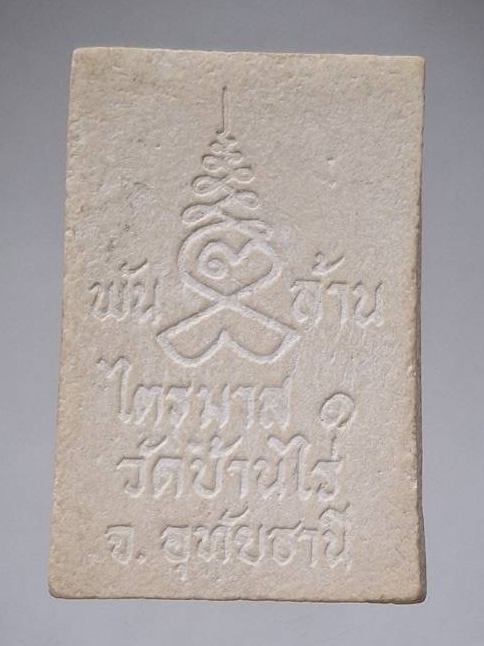 พัน ล้าน
ไตรมาส ๑
วัดบ้านไร่
จ. อุทัยธานี